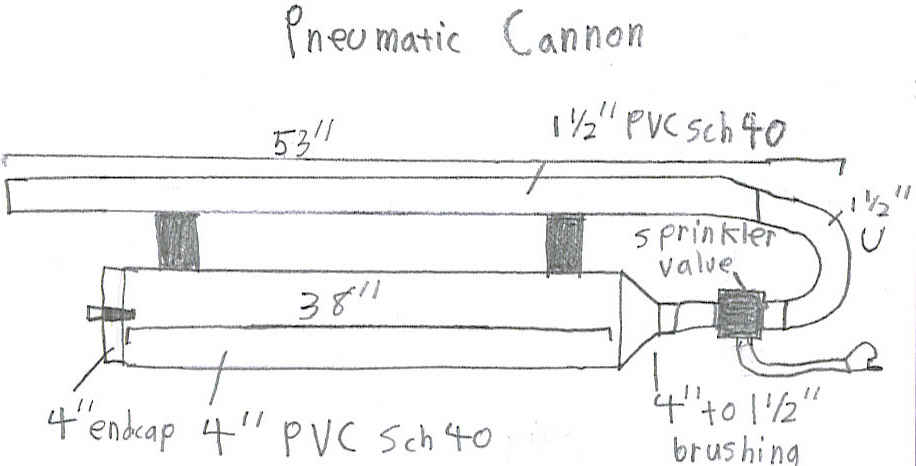 Pneumatic Cannon
53"
1½" PVC sch 40
1½"
U
sprinkler
value
38"
4" endcap
4" PVC Sch 40
4" to 1½"
brushing